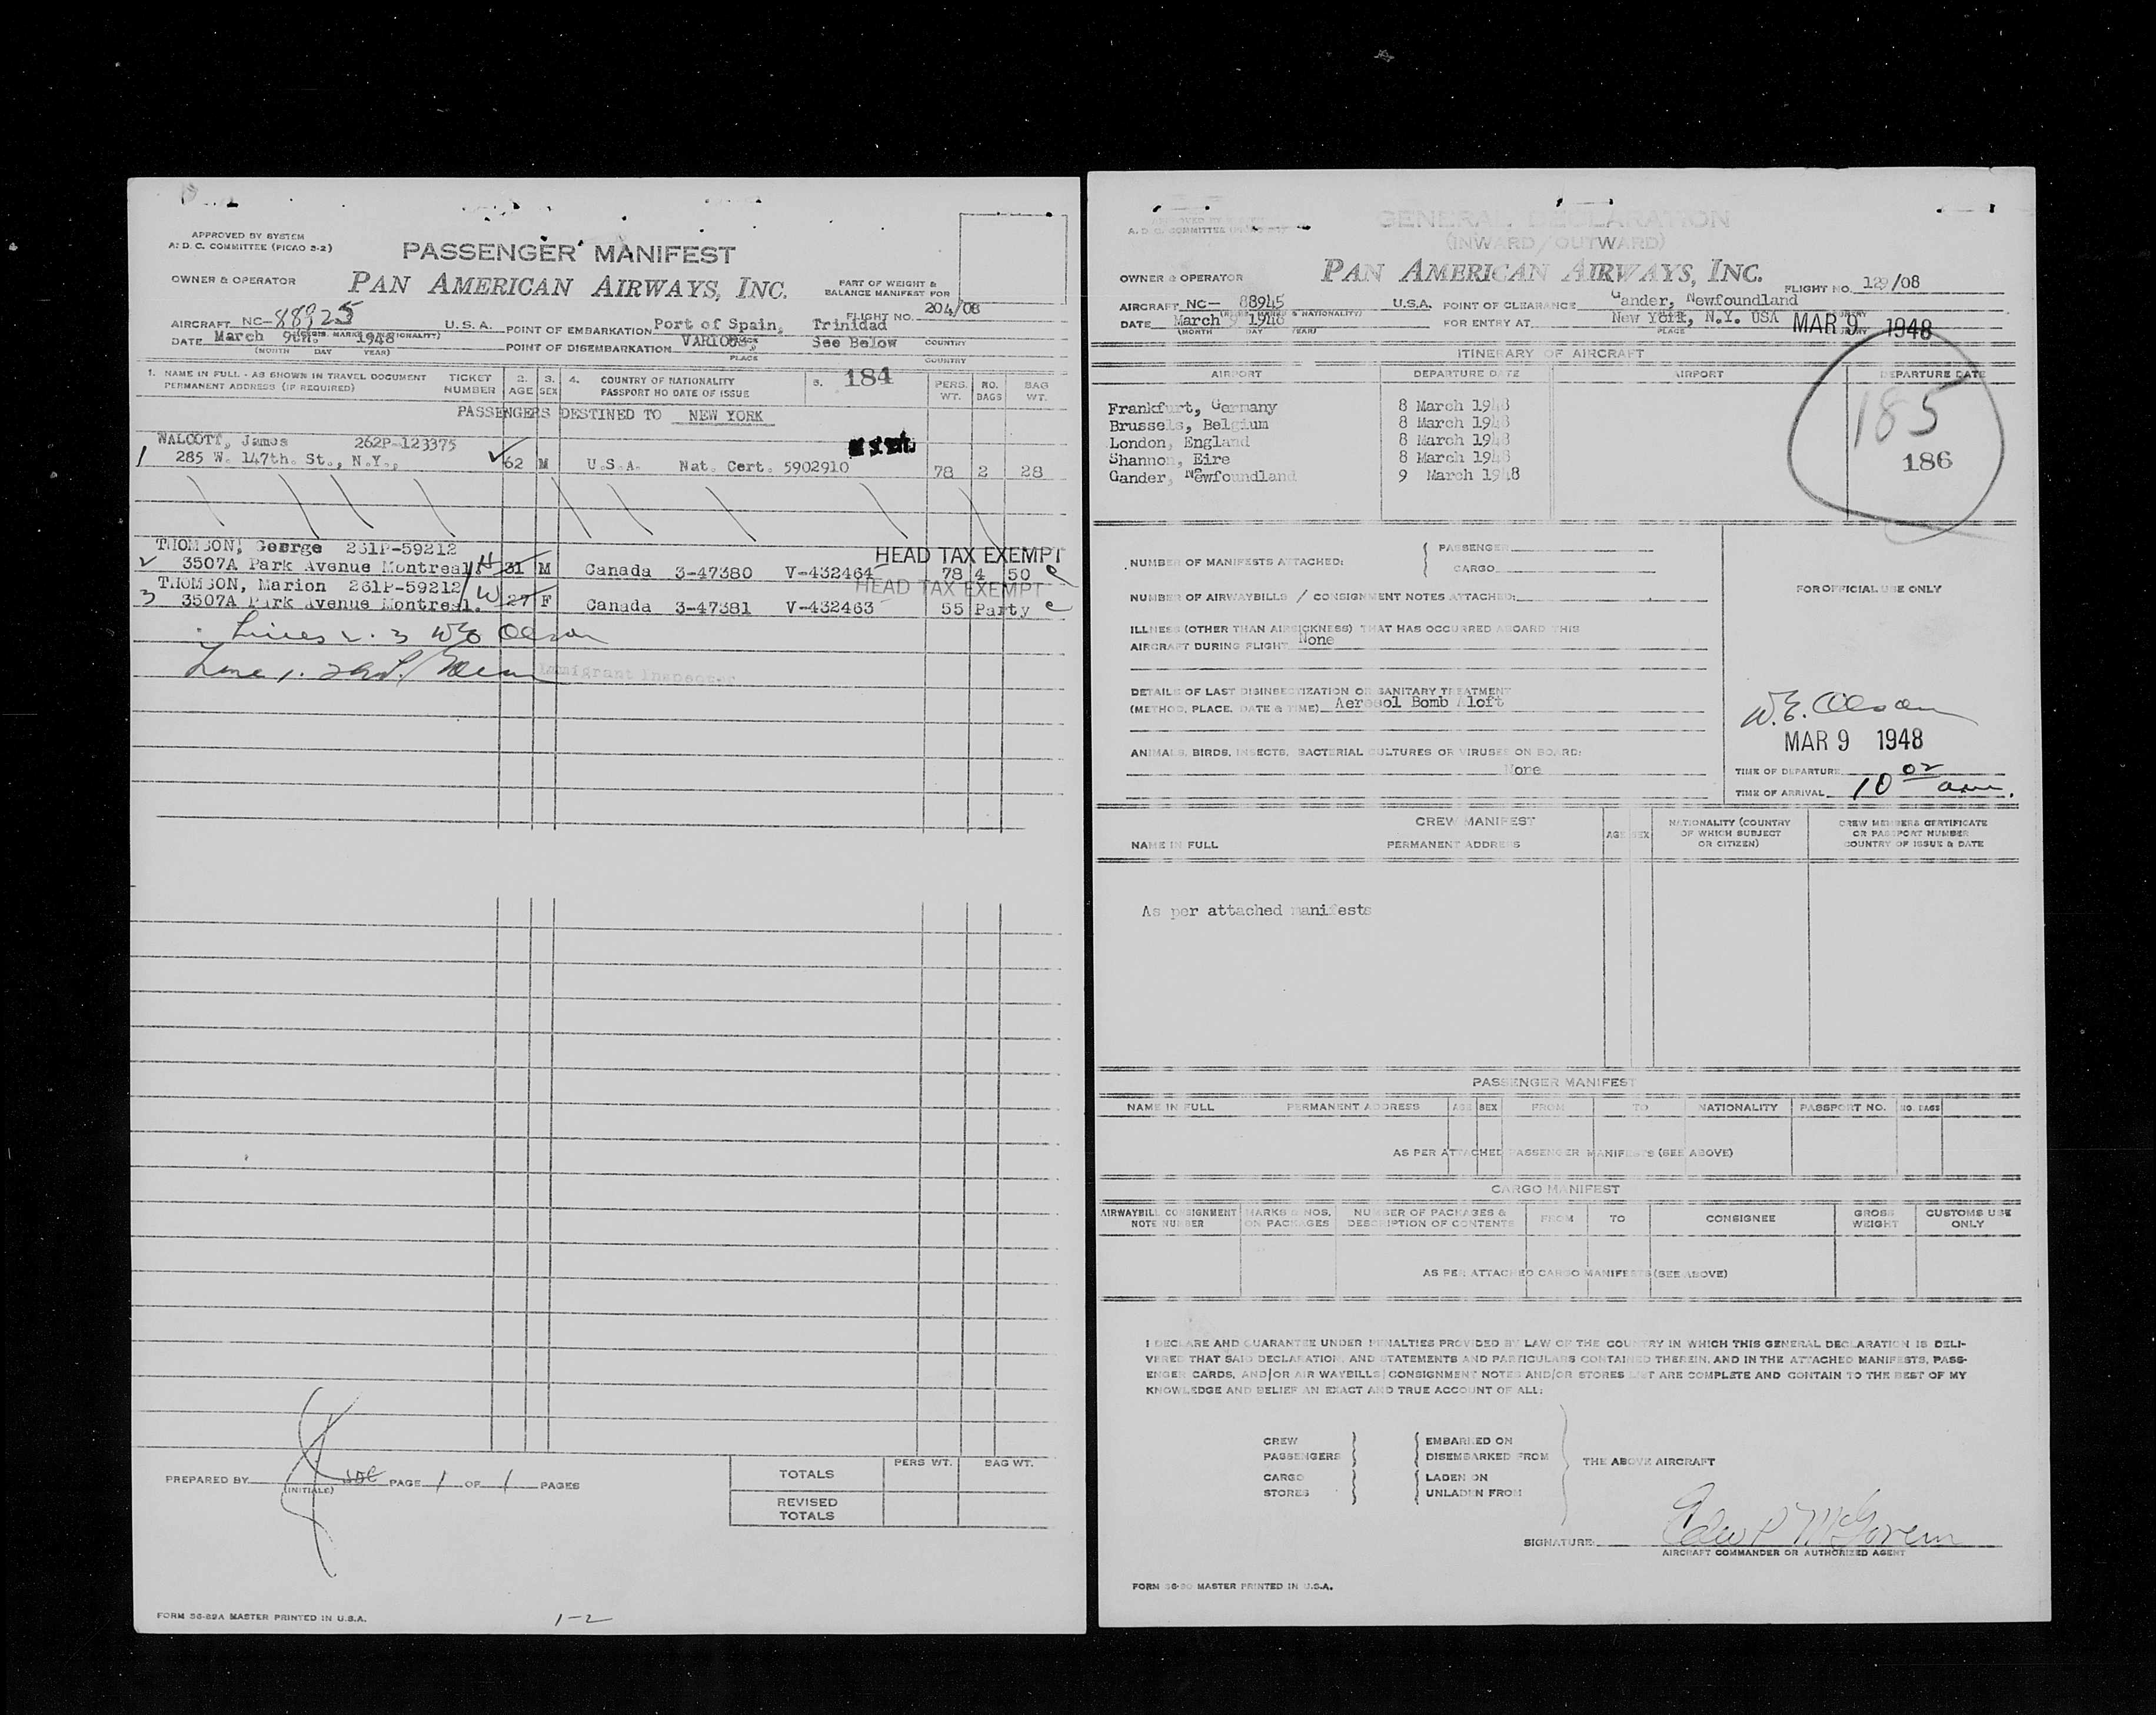 APPROVED BY SYSTEM
A. D. C. COMMITTEE (PICAO 5-2)
PASSENGER MANIFEST
OWNER & OPERATOR PAN AMERICAN AIRWAYS, INC.
PART OF WEIGHT &
BALANCE MANIFEST FOR
FLIGHT NO. 204/08
AIRCRAFT NC-88925 U.S.A. POINT OF EMBARKATION Port of Spain, Trinidad
DATE March 9th. 1948 POINT OF DISEMBARKATION VARIOUS, See Below
(MONTH DAY YEAR) PLACE COUNTRY
1. NAME IN FULL - AS SHOWN IN TRAVEL DOCUMENT TICKET 2. 3. 4. COUNTRY OF NATIONALITY 5. 184 PERS. NO. BAG
PERMANENT ADDRESS (IF REQUIRED) NUMBER AGE SEX PASSPORT NO DATE OF ISSUE WT. BAGS WT.
PASSENGERS DESTINED TO NEW YORK
WALCOTT, James 262P-123375
1 285 W. 147th. St., N.Y., 62 M U.S.A. Nat. Cert. 5902910 78 2 28
THOMSON, George 261P-59212 HEAD TAX EXEMPT
2 3507A Park Avenue Montreal H 31 M Canada 3-47380 V-432464 78 4 50
THOMSON, Marion 261P-59212 HEAD TAX EXEMPT
3 3507A Park Avenue Montreal. W 27 F Canada 3-47381 V-432463 55 Party
Lines 2. 3 WE Olson
Line 1.
Immigrant Inspector
PREPARED BY PAGE 1 OF 1 PAGES
(INITIALS)
PERS WT. BAG WT.
TOTALS
REVISED
TOTALS
FORM 36-89A MASTER PRINTED IN U.S.A.
1-2
GENERAL DECLARATION
(INWARD/OUTWARD)
OWNER & OPERATOR PAN AMERICAN AIRWAYS, INC. FLIGHT NO. 129/08
AIRCRAFT NC- 88945 U.S.A. POINT OF CLEARANCE Gander, Newfoundland
DATE March 9 1948 FOR ENTRY AT New York, N.Y. USA MAR 9 1948
(MONTH DAY YEAR) PLACE
ITINERARY OF AIRCRAFT
AIRPORT DEPARTURE DATE AIRPORT DEPARTURE DATE
Frankfurt, Germany 8 March 1948
Brussels, Belgium 8 March 1948
London, England 8 March 1948
Shannon, Eire 8 March 1948
Gander, Newfoundland 9 March 1948
185
186
NUMBER OF MANIFESTS ATTACHED: PASSENGER
CARGO
NUMBER OF AIRWAYBILLS / CONSIGNMENT NOTES ATTACHED:
FOR OFFICIAL USE ONLY
ILLNESS (OTHER THAN AIRSICKNESS) THAT HAS OCCURRED ABOARD THIS
AIRCRAFT DURING FLIGHT None
DETAILS OF LAST DISINSECTIZATION OR SANITARY TREATMENT
(METHOD, PLACE, DATE & TIME) Aerosol Bomb Aloft
ANIMALS, BIRDS, INSECTS, BACTERIAL CULTURES OR VIRUSES ON BOARD:
None
W.E. Olson
MAR 9 1948
TIME OF DEPARTURE
TIME OF ARRIVAL 10 02 am.
CREW MANIFEST
NAME IN FULL PERMANENT ADDRESS AGE SEX NATIONALITY (COUNTRY OF WHICH SUBJECT OR CITIZEN) CREW MEMBERS CERTIFICATE OR PASSPORT NUMBER COUNTRY OF ISSUE & DATE
As per attached manifests
PASSENGER MANIFEST
NAME IN FULL PERMANENT ADDRESS AGE SEX FROM TO NATIONALITY PASSPORT NO. NO. BAGS
AS PER ATTACHED PASSENGER MANIFESTS (SEE ABOVE)
CARGO MANIFEST
AIRWAYBILL CONSIGNMENT NOTE NUMBER MARKS & NOS. ON PACKAGES NUMBER OF PACKAGES & DESCRIPTION OF CONTENTS FROM TO CONSIGNEE GROSS WEIGHT CUSTOMS USE ONLY
AS PER ATTACHED CARGO MANIFESTS (SEE ABOVE)
I DECLARE AND GUARANTEE UNDER PENALTIES PROVIDED BY LAW OF THE COUNTRY IN WHICH THIS GENERAL DECLARATION IS DELI-
VERED THAT SAID DECLARATION, AND STATEMENTS AND PARTICULARS CONTAINED THEREIN, AND IN THE ATTACHED MANIFESTS, PASS-
ENGER CARDS, AND/OR AIR WAYBILLS/CONSIGNMENT NOTES AND/OR STORES LIST ARE COMPLETE AND CONTAIN TO THE BEST OF MY
KNOWLEDGE AND BELIEF AN EXACT AND TRUE ACCOUNT OF ALL:
CREW EMBARKED ON
PASSENGERS DISEMBARKED FROM THE ABOVE AIRCRAFT
CARGO LADEN ON
STORES UNLADEN FROM
SIGNATURE: Edw P McGovern
AIRCRAFT COMMANDER OR AUTHORIZED AGENT
FORM 36-90 MASTER PRINTED IN U.S.A.